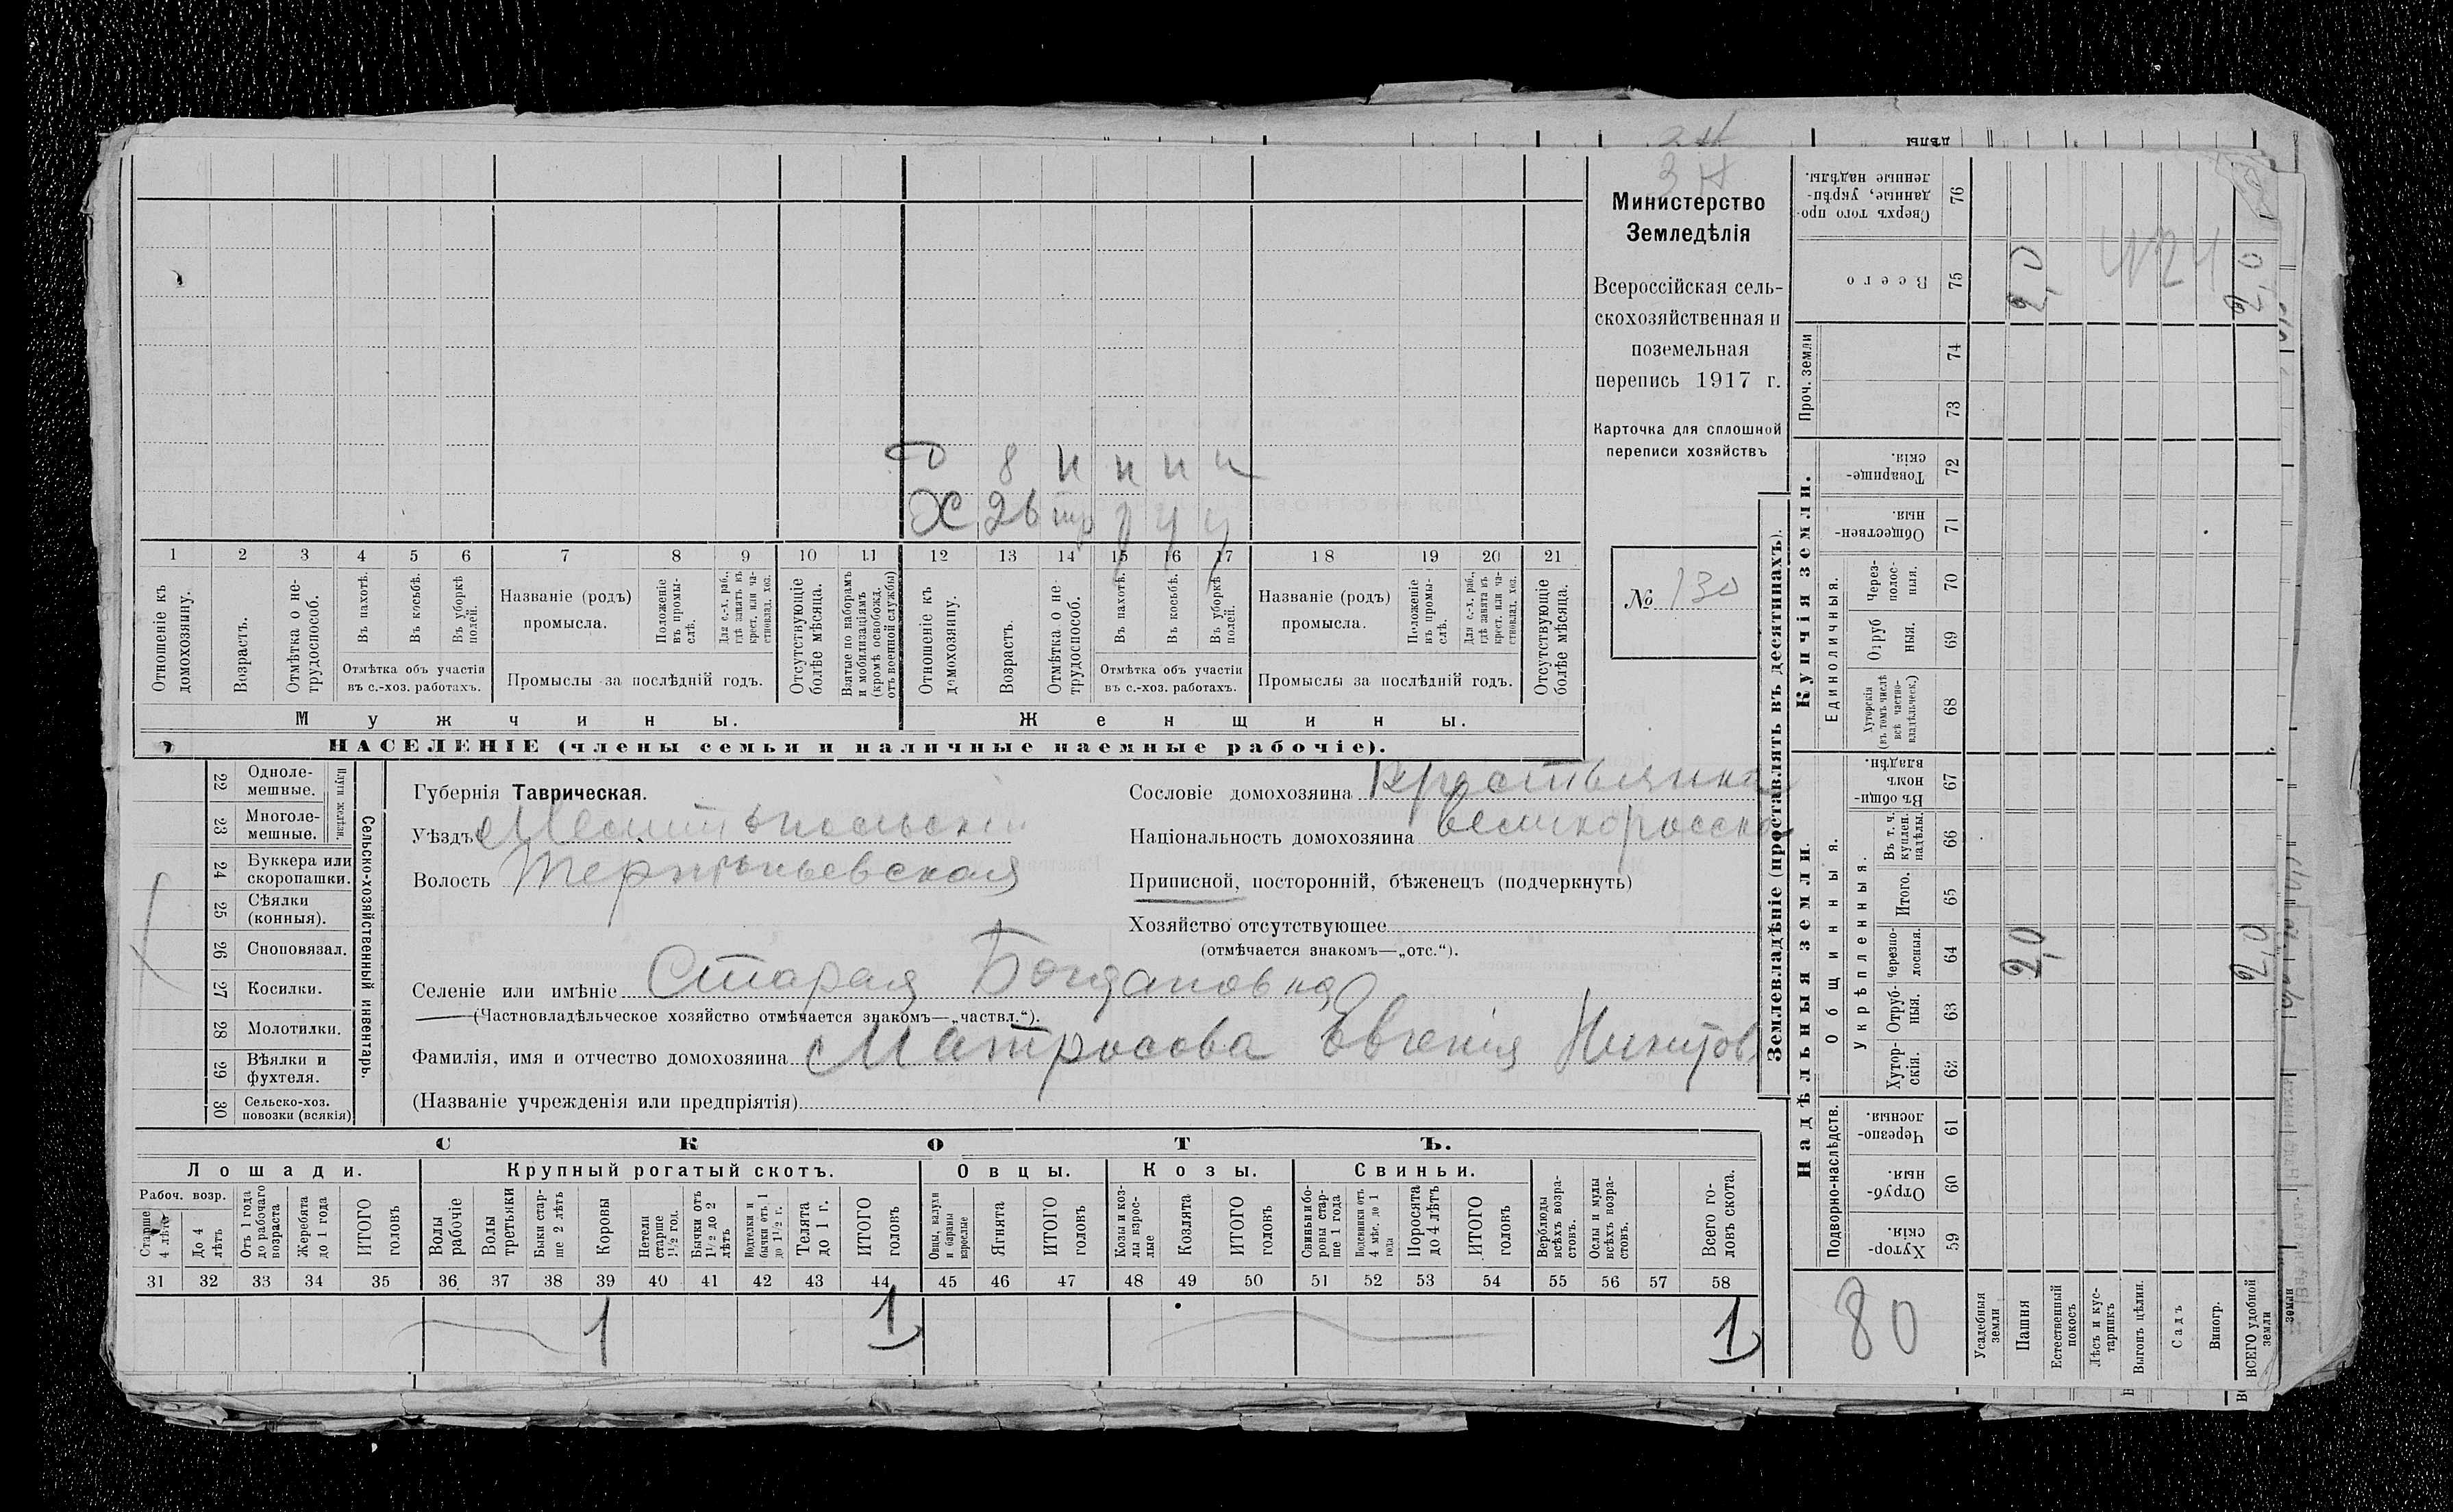 Министерство
Земледѣлія
Всероссійская сель-
скохозяйственная и
поземельная
перепись 1917 г.
Карточка для сплошной
переписи хозяйствъ
№ 130
Д 8 н н н н
Х 26
1 2 3 4 5 6 7 8 9 10 11 12 13 14 15 16 17 18 19 20 21
Отношеніе къ домохозяину.
Возрастъ.
Отмѣтка о не-
трудоспособ.
Въ пахотѣ.
Въ косьбѣ.
Въ уборкѣ полей.
Отмѣтка объ участіи
въ с.-хоз. работахъ.
Названіе (родъ)
промысла.
Положеніе
въ промы-
слѣ.
Для с.-х. раб.,
гдѣ занятъ въ
крест. или ча-
стновлад. хоз.
Промыслы за послѣдній годъ.
Отсутствующіе
болѣе мѣсяца.
Взятые по наборамъ
и мобилизаціямъ
(кромѣ освобожд.
отъ военной службы)
Отношеніе къ
домохозяину.
Возрастъ.
Отмѣтка о не-
трудоспособ.
Въ пахотѣ.
Въ косьбѣ.
Въ уборкѣ
полей.
Отмѣтка объ участіи
въ с.-хоз. работахъ.
Названіе (родъ)
промысла.
Положеніе
въ промы-
слѣ.
Для с.-х. раб.,
гдѣ занята въ
крест. или ча-
стновлад. хоз.
Промыслы за послѣдній годъ.
Отсутствующіе
болѣе мѣсяца.
Мужчины. Женщины.
НАСЕЛЕНІЕ (члены семьи и наличные наемные рабочіе).
22 Одноле-
мешные.
23 Многоле-
мешные.
Плуги желѣзн.
24 Буккера или
скоропашки.
25 Сѣялки
(конныя).
26 Сноповязал.
27 Косилки.
28 Молотилки.
29 Вѣялки и
фухтеля.
30 Сельско-хоз.
повозки (всякія)
Сельско-хозяйственный инвентарь.
Губернія Таврическая.
Уѣздъ Мелитопольскій
Волость Терпѣньевская
Сословіе домохозяина крестьянка
Національность домохозяина великоросска
Приписной, посторонній, бѣженецъ (подчеркнуть)
Хозяйство отсутствующее
(отмѣчается знакомъ—„отс.“).
Селеніе или имѣніе Старая Богдановка
(Частновладѣльческое хозяйство отмѣчается знакомъ—„частвл.“).
Фамилія, имя и отчество домохозяина Матросова Евгенія Никитов.
(Названіе учрежденія или предпріятія)
СКОТЪ.
Лошади. Крупный рогатый скотъ. Овцы. Козы. Свиньи.
Рабоч. возр.
Старше
4 лѣтъ
До 4
лѣтъ
Отъ 1 года
до рабочаго
возраста
Жеребята
до 1 года
ИТОГО
головъ
Волы
рабочіе
Волы
третьяки
Быки стар-
ше 2 лѣтъ
Коровы
Нетели
старше
1½ год.
Бычки отъ
1½ до 2
лѣтъ
Подтелки и
бычки отъ 1
до 1½ г.
Телята
до 1 г.
ИТОГО
головъ
Овцы, валухи
и бараны
взрослые
Ягнята
ИТОГО
головъ
Козы и коз-
лы взрос-
лые
Козлята
ИТОГО
головъ
Свиньи и бо-
ровы стар-
ше 1 года
Подсвинки отъ
4 мѣс. до 1
года
Поросята
до 4 лѣтъ
ИТОГО
головъ
Верблюды
всѣхъ возра-
стовъ.
Ослы и мулы
всѣхъ возра-
стовъ.
Всего го-
ловъ скота.
31 32 33 34 35 36 37 38 39 40 41 42 43 44 45 46 47 48 49 50 51 52 53 54 55 56 57 58
1 1 1
Землевладѣніе (проставлять въ десятинахъ).
Купчія земли.
Надѣльныя земли.
Сверхъ того про-
данные, укрѣп-
ленные надѣлы.
76
Всего
75
Проч. земли
74
73
Товарище-
скія.
72
Обществен-
ныя.
71
Единоличныя.
Через-
полос-
ныя.
70
Отруб
ныя.
69
Хуторскія
(въ томъ числѣ
всѣ частно-
владѣльческ.)
68
Въ общи-
номъ
владѣн.
67
Общинныя.
Укрѣпленныя.
Въ т. ч.
куплен.
надѣлы.
66
Итого.
65
Черезпо-
лосныя.
64
Отруб-
ныя.
63
Хутор-
скія.
62
Подворно-наслѣдств.
Черезпо-
лосныя.
61
Отруб-
ныя.
60
Хутор-
скія.
59
80
Усадебныя
земли
Пашня
Естественный
покосъ
Лѣсъ и кус-
тарникъ
Выгонъ цѣлин.
Садъ
Виногр.
ВСЕГО удобной
земли
2,0
2,0
2,0
2,0
дѣлы
земли